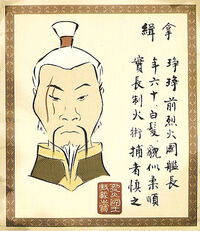 緝拿
琤琤前烈火國艦長
年六十白髮貌似柔順
實長制火術捕者慎之